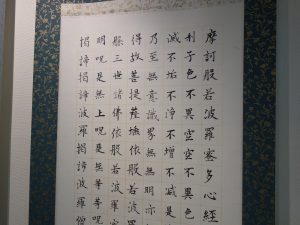 摩訶般若波羅蜜多心經
利子色不異空空不異色
滅不垢不淨不增不減是
乃至無意識界無無明亦
得故菩提薩埵依般若波
三世諸佛依般若波羅
明呪是無上呪是無等等呪
揭諦揭諦波羅揭諦波羅僧